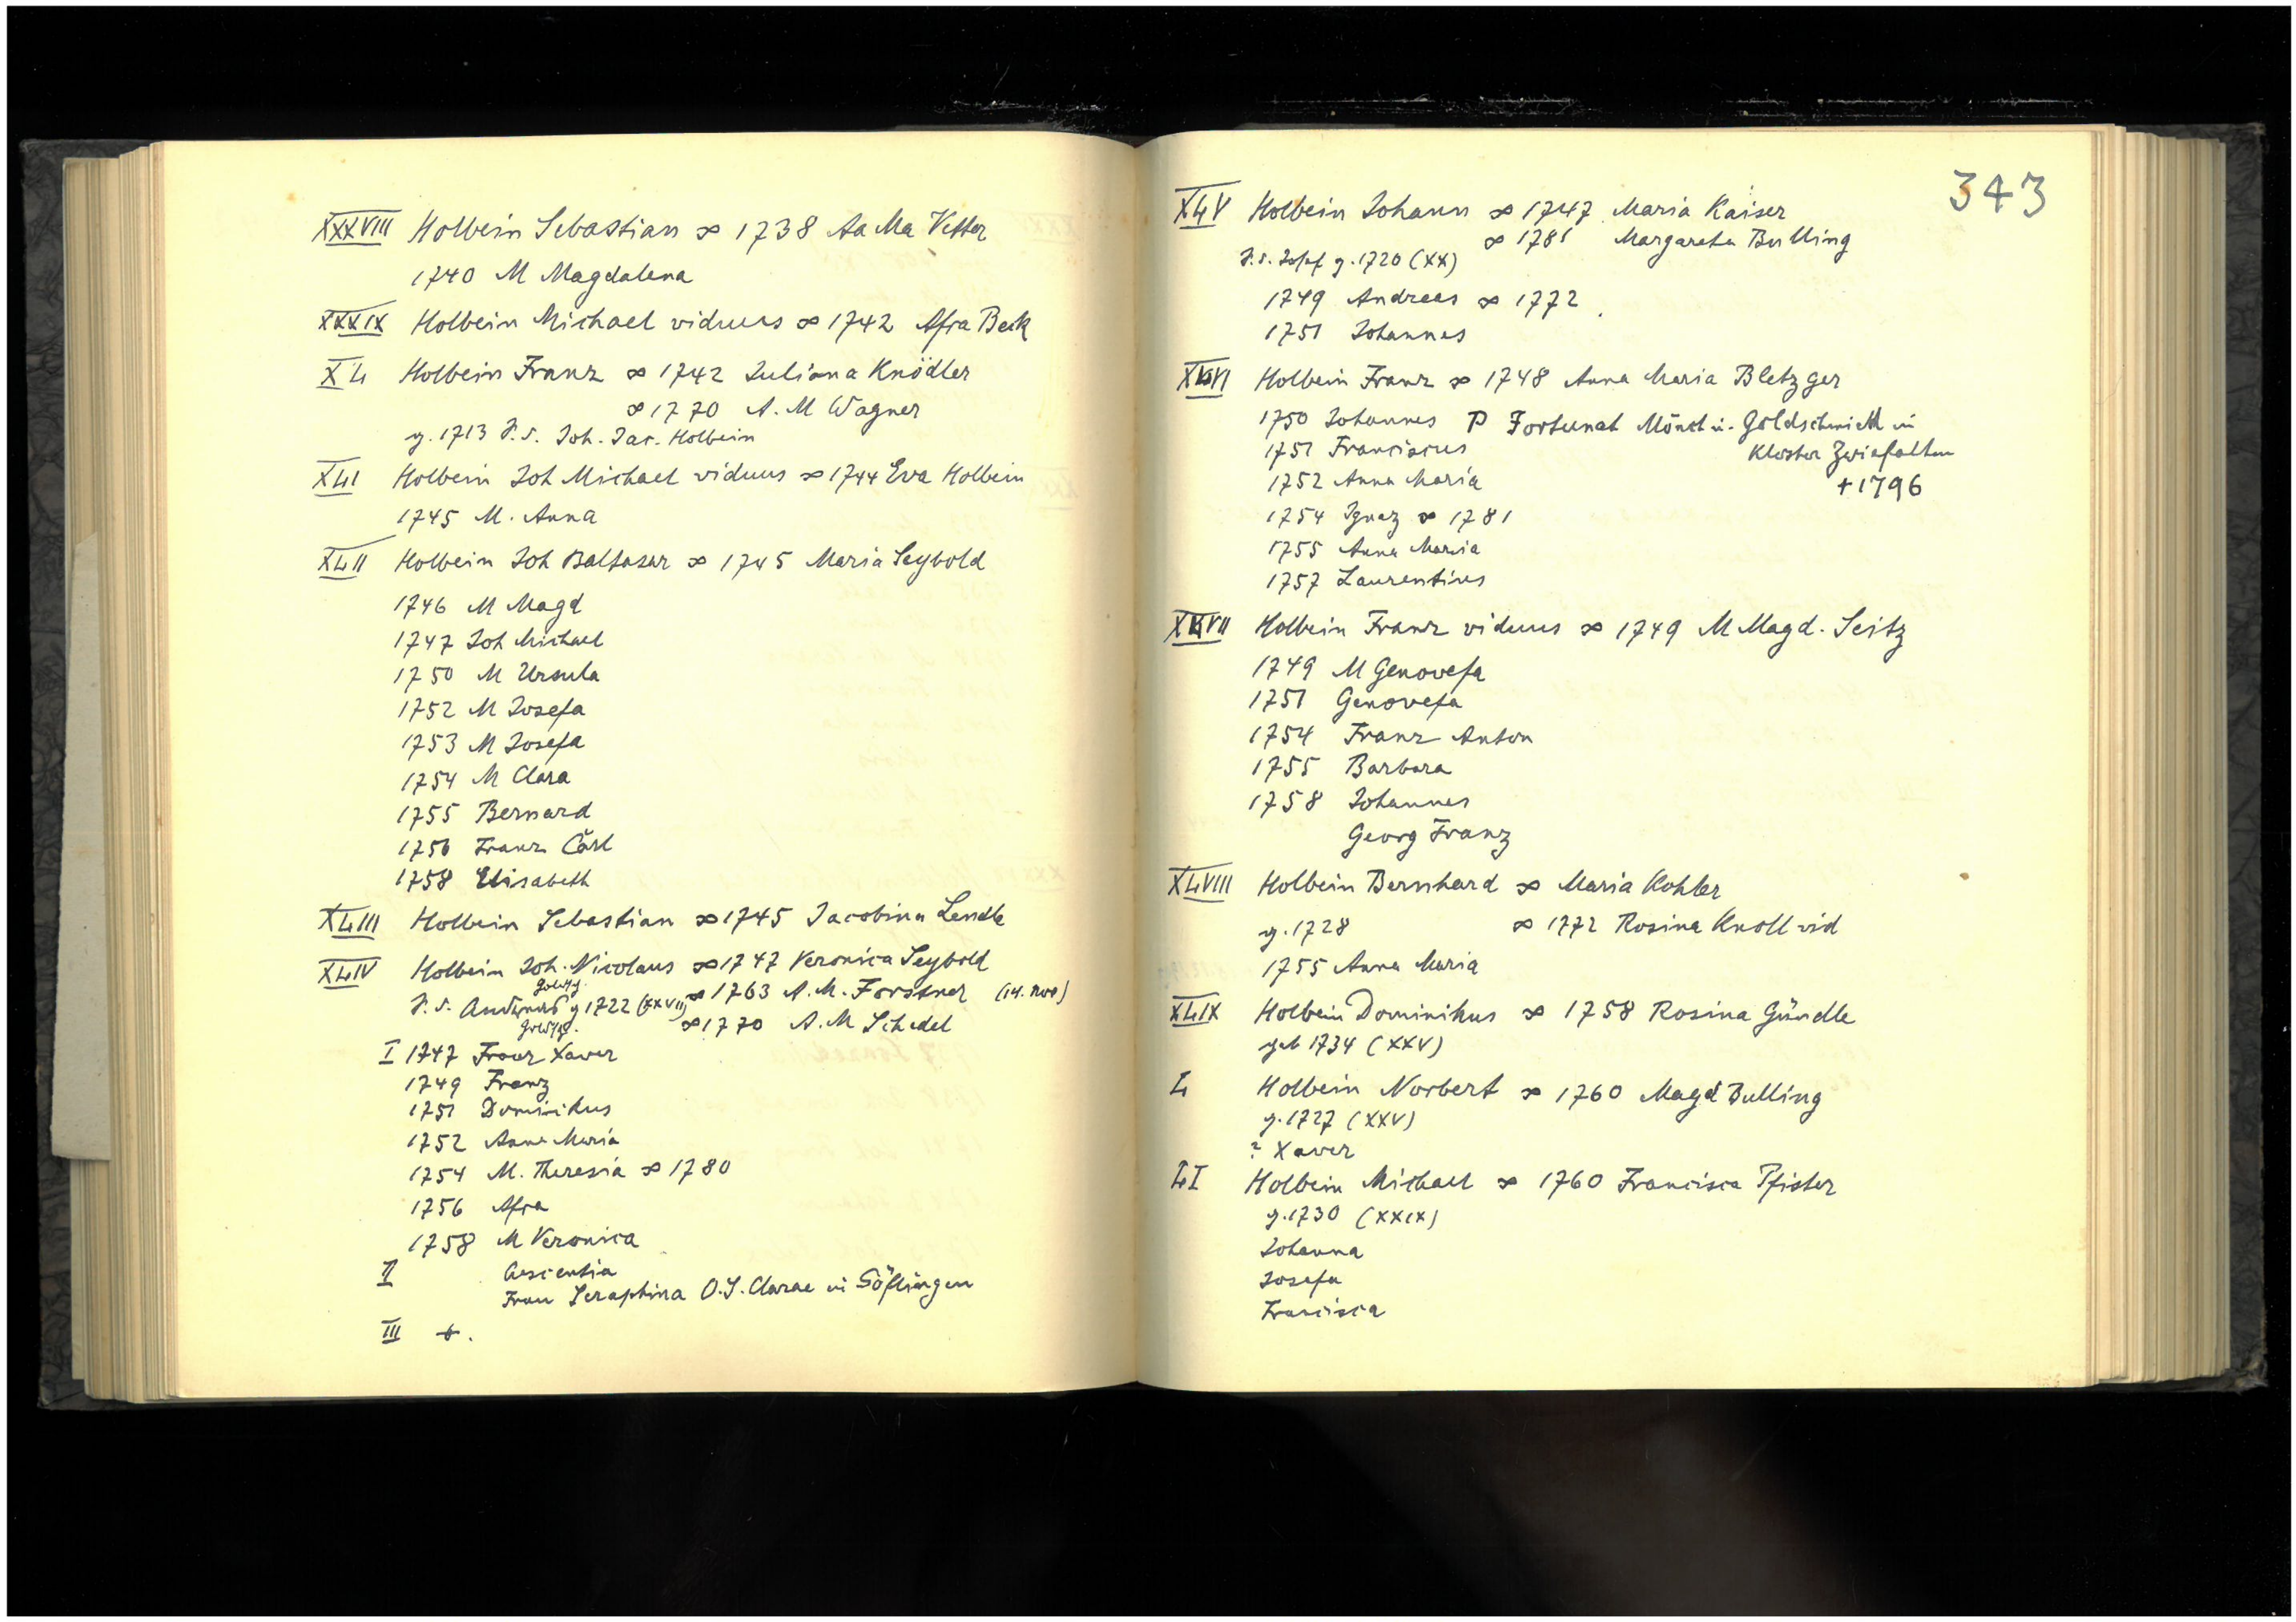 XXXVIII Holbein Sebastian ∞ 1738 Aa Ma Vetter
1740 M Magdalena
XXXIX Holbein Michael viduus ∞ 1742 Afra Beck
XL Holbein Franz ∞ 1742 Juliana Knödler
∞ 1770 A. M Wagner
g. 1713 F. v. Joh. Jac. Holbein
XLI Holbein Joh Michael viduus ∞ 1744 Eva Holbein
1745 M. Anna
XLII Holbein Joh Baltasar ∞ 1745 Maria Seybold
1746 M Magd
1747 Joh Michael
1750 M Ursula
1752 M Josefa
1753 M Josefa
1754 M Clara
1755 Bernard
1756 Franz Carl
1758 Elisabeth
XLIII Holbein Sebastian ∞ 1745 Jacobina Lendle
XLIV Holbein Joh. Nicolaus ∞ 1747 Veronica Seybold
g 1722 (XXVII) ∞ 1763 A. M. Forstner (14. Nov)
∞ 1770 A. M Schedel
I 1747 Franz Xaver
1749 Franz
1751 Dominikus
1752 Anna Maria
1754 M. Theresia ∞ 1780
1756 Afra
1758 M Veronica
II Crescentia
Frau Seraphina O. S. Clarae in Söflingen
III +.
343
XLV Holbein Johann ∞ 1747 Maria Kaiser
∞ 1781 Margareta Bulling
F. v. Josef g. 1720 (XX)
1749 Andreas ∞ 1772
1751 Johannes
XLVI Holbein Franz ∞ 1748 Anna Maria Bletzger
1750 Johannes P Fortunat Mönch u. Goldschmied in
1751 Franciscus Kloster Zwiefalten
1752 Anna Maria +1796
1754 Ignaz ∞ 1781
1755 Anna Maria
1757 Laurentius
XLVII Holbein Franz viduus ∞ 1749 M Magd. Seitz
1749 M Genovefa
1751 Genovefa
1754 Franz Anton
1755 Barbara
1758 Johannes
Georg Franz
XLVIII Holbein Bernhard ∞ Maria Kohler
g. 1728 ∞ 1772 Rosina Knoll vid
1755 Anna Maria
XLIX Holbein Dominikus ∞ 1758 Rosina Gündle
geb 1734 (XXV)
L Holbein Norbert ∞ 1760 Magd Bulling
g. 1727 (XXV)
? Xaver
LI Holbein Michael ∞ 1760 Francisca Pfister
g. 1730 (XXIX)
Johanna
Josefa
Francisca